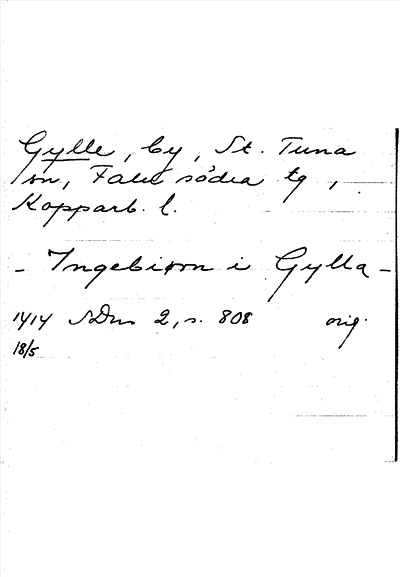 Gylle, by, St. Tuna
sn, Falu södra tg,
Kopparb. l.
- Ingebiorn i Gylla -
1414 SDns 2, s. 808 orig.
18/5